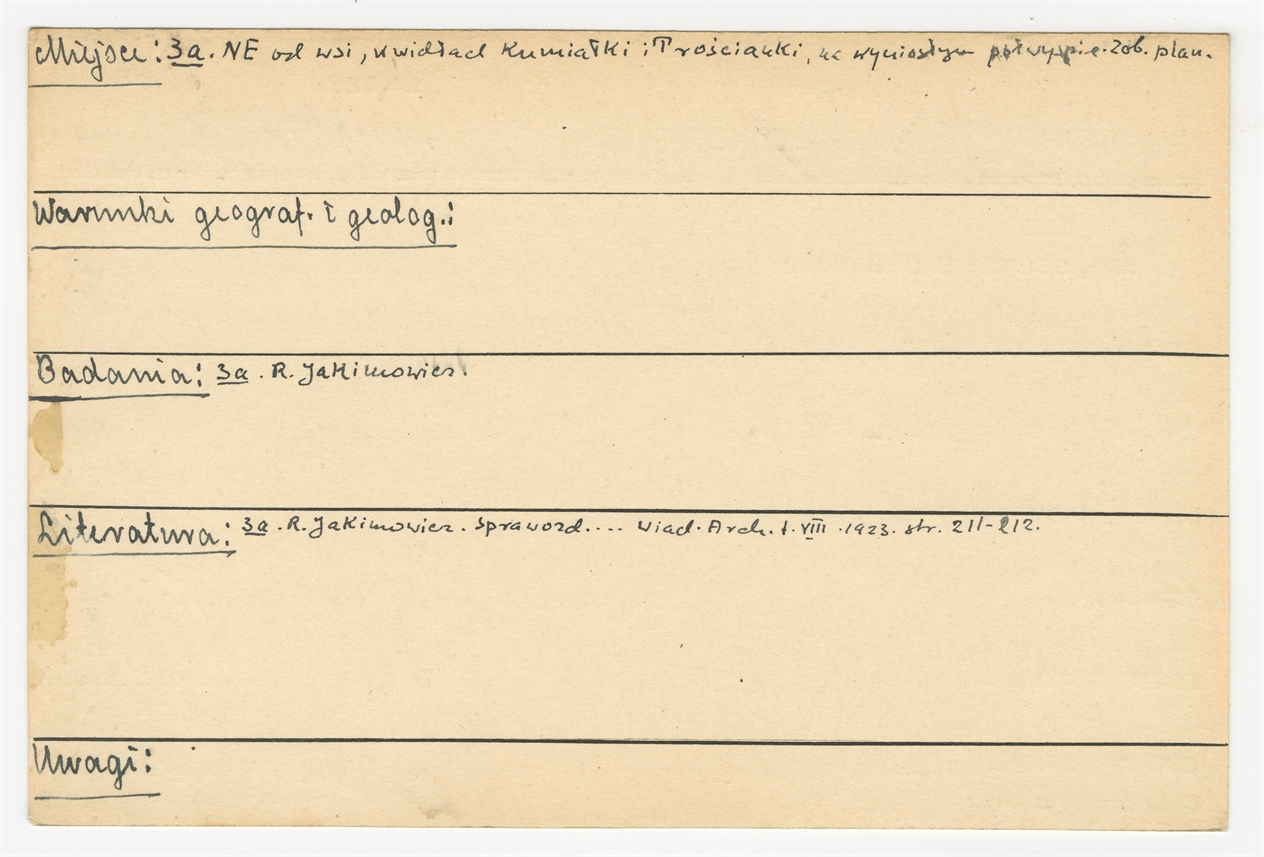 Miejsce: 3a. NE od wsi, w widłach Kumiałki i Trościanki, na wyniosłym półwyspie. Zob. plan.
Warunki geograf. i geolog.:
Badania: 3a. R. Jakimowicz.
Literatura: 3a. R. Jakimowicz. Sprawozd.... Wiad. Arch. t. VIII. 1923. str. 211-212.
Uwagi: